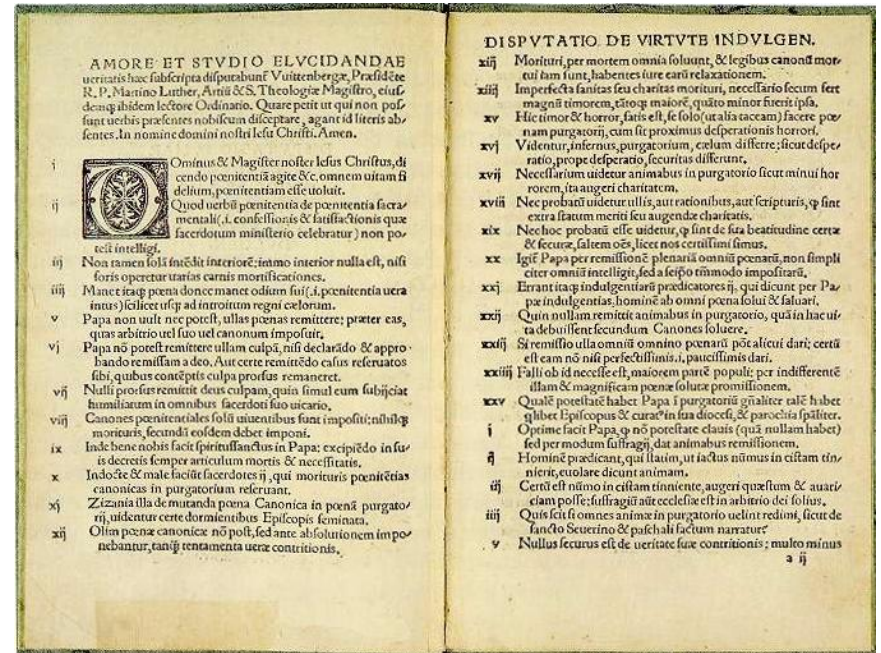 AMORE ET STVDIO ELVCIDANDAE
ueritatis hæc subscripta disputabunt̃ Vuittenbergæ, Præsidẽte
R. P. Martino Luther, Artiũ & S. Theologiæ Magistro, eius-
demq; ibidem lectore Ordinatio. Quare petit ut qui non pos-
sunt uerbis præsentes nobiscum disceptare, agant id literis ab-
sentes. In nomine domini nostri Iesu Christi. Amen.
i Ominus & Magister noster Iesus Christus, di
cendo pœnitentiã agite &c, omnem uitam fi
delium, pœnitentiam esse uoluit.
ij Quod uerbũ pœnitentia de pœnitentia sacra-
mentali (.i. confessionis & satisfactionis quæ
sacerdotum ministerio celebratur) non po-
test intelligi.
iij Non tamen solã intẽdit interiorẽ: immo interior nulla est, nisi
foris operetur uarias carnis mortificationes.
iiij Manet itaq; pœna donec manet odium sui (.i. pœnitentia uera
intus) scilicet usq; ad introitum regni cælorum.
v Papa non uult nec potest, ullas pœnas remittere: præter eas,
quas arbitrio uel suo uel canonum imposuit.
vj Papa nõ potest remittere ullam culpã, nisi declarãdo & appro-
bando remissam a deo. Aut certe remittẽdo casus reseruatos
sibi, quibus contẽptis culpa prorsus remaneret.
vij Nulli prorsus remittit deus culpam, quin simul eum subijciat
humiliatum in omnibus sacerdoti suo uicario.
viij Canones pœnitentiales solũ uiuentibus sunt impositi: nihilq;
morituris, secundũ eosdem debet imponi.
ix Inde bene nobis facit spiritussanctus in Papa: excipiẽdo in su-
is decretis semper articulum mortis & necessitatis.
x Indocte & male faciũt sacerdotes ij, qui morituris pœnitẽtias
canonicas in purgatorium reseruant.
xj Zizania illa de mutanda pœna Canonica in pœnã purgato-
rij, uidentur certe dormientibus Episcopis seminata.
xij Olim pœnæ canonicæ nõ post, sed ante absolutionem impo-
nebantur, tanq̃ tentamenta ueræ contritionis.
DISPVTATIO DE VIRTVTE INDVLGEN.
xiij Morituri, per mortem omnia soluunt, & legibus canonũ mor-
tui iam sunt, habentes iure earũ relaxationem.
xiiij Imperfecta sanitas seu charitas morituri, necessario secum fert
magnũ timorem, tãtoq; maiorẽ, quãto minor fuerit ipsa.
xv Hic timor & horror, satis est, se solo (ut alia taceam) facere pœ-
nam purgatorij, cum sit proximus desperationis horrori.
xvj Videntur, infernus, purgatorium, cælum differre: sicut despe-
ratio, prope desperatio, securitas differunt.
xvij Necessarium uidetur animabus in purgatorio sicut minui hor
rorem, ita augeri charitatem.
xviij Nec probatũ uidetur ullis, aut rationibus, aut scripturis, q̃ sint
extra statum meriti seu augendæ charitatis.
xix Nec hoc probatũ esse uidetur, q̃ sint de sua beatitudine certæ
& securæ, saltem oẽs, licet nos certissimi simus.
xx Igit̃ Papa per remissionẽ plenariã omniũ pœnarũ, non simpli
citer omniũ intelligit, sed a seipo tm̃modo impositarũ.
xxj Errant itaq; indulgentiarũ prædicatores ij, qui dicunt per Pa-
pæ indulgentias, hominẽ ab omni pœna solui & saluari.
xxij Quin nullam remittit animabus in purgatorio, quã in hac ui-
ta debuissent secundum Canones soluere.
xxiij Si remissio ulla omniũ omnino pœnarũ põt alicui dari: certũ
est eam nõ nisi perfectissimis .i. paucissimis dari.
xxiiij Falli ob id necesse est, maiorem partẽ populi: per indifferentẽ
illam & magnificam pœnæ solutæ promissionem.
xxv Qualẽ potestatẽ habet Papa ĩ purgatoriũ gñaliter talẽ habet
q̃libet Episcopus & curat9 in sua diocesi, & parochia spãliter.
j Optime facit Papa, q̃ nõ potestate clauis (quã nullam habet)
sed per modum suffragij, dat animabus remissionem.
ij Hominẽ prædicant, qui statim, ut iactus nũmus in cistam tin-
nierit, euolare dicunt animam.
iij Certũ est nũmo in cistam tinniente, augeri quæstum & auari-
ciam posse: suffragiũ aũt ecclesiæ est in arbitrio dei solius.
iiij Quis scit si omnes animæ in purgatorio uelint redimi, sicut de
sancto Seuerino & paschali factum narratur?
v Nullus securus est de ueritate suæ contritionis: multo minus
a ij